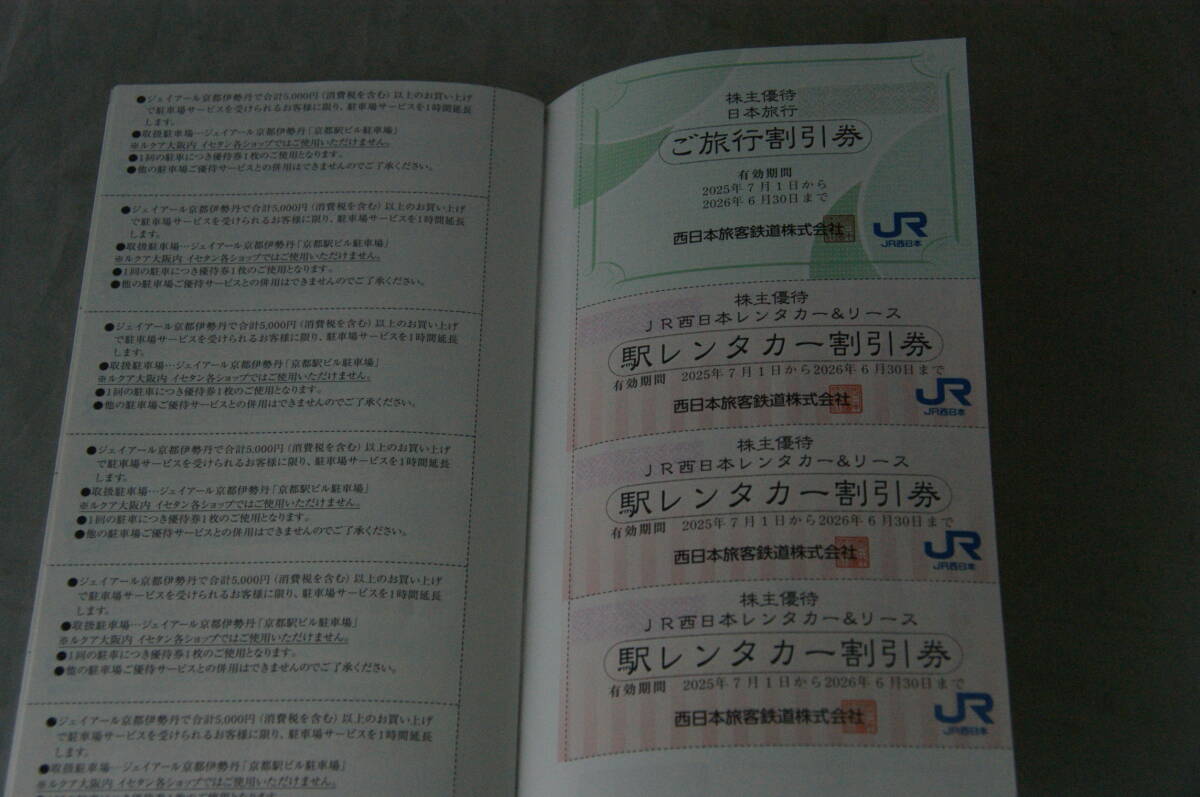 ●ジェイアール京都伊勢丹で合計5,000円（消費税を含む）以上のお買い上げ
で駐車場サービスを受けられるお客様に限り、駐車場サービスを1時間延長
します。
●取扱駐車場…ジェイアール京都伊勢丹「京都駅ビル駐車場」
※ルクア大阪内 イセタン各ショップではご使用いただけません。
●1回の駐車につき優待券1枚のご使用となります。
●他の駐車場ご優待サービスとの併用はできませんのでご了承ください。
●ジェイアール京都伊勢丹で合計5,000円（消費税を含む）以上のお買い上げ
で駐車場サービスを受けられるお客様に限り、駐車場サービスを1時間延長
します。
●取扱駐車場…ジェイアール京都伊勢丹「京都駅ビル駐車場」
※ルクア大阪内 イセタン各ショップではご使用いただけません。
●1回の駐車につき優待券1枚のご使用となります。
●他の駐車場ご優待サービスとの併用はできませんのでご了承ください。
●ジェイアール京都伊勢丹で合計5,000円（消費税を含む）以上のお買い上げ
で駐車場サービスを受けられるお客様に限り、駐車場サービスを1時間延長
します。
●取扱駐車場…ジェイアール京都伊勢丹「京都駅ビル駐車場」
※ルクア大阪内 イセタン各ショップではご使用いただけません。
●1回の駐車につき優待券1枚のご使用となります。
●他の駐車場ご優待サービスとの併用はできませんのでご了承ください。
●ジェイアール京都伊勢丹で合計5,000円（消費税を含む）以上のお買い上げ
で駐車場サービスを受けられるお客様に限り、駐車場サービスを1時間延長
します。
●取扱駐車場…ジェイアール京都伊勢丹「京都駅ビル駐車場」
※ルクア大阪内 イセタン各ショップではご使用いただけません。
●1回の駐車につき優待券1枚のご使用となります。
●他の駐車場ご優待サービスとの併用はできませんのでご了承ください。
●ジェイアール京都伊勢丹で合計5,000円（消費税を含む）以上のお買い上げ
で駐車場サービスを受けられるお客様に限り、駐車場サービスを1時間延長
します。
●取扱駐車場…ジェイアール京都伊勢丹「京都駅ビル駐車場」
※ルクア大阪内 イセタン各ショップではご使用いただけません。
●1回の駐車につき優待券1枚のご使用となります。
●他の駐車場ご優待サービスとの併用はできませんのでご了承ください。
●ジェイアール京都伊勢丹で合計5,000円（消費税を含む）以上のお買い上げ
で駐車場サービスを受けられるお客様に限り、駐車場サービスを1時間延長
します。
●取扱駐車場…ジェイアール京都伊勢丹「京都駅ビル駐車場」
※ルクア大阪内 イセタン各ショップではご使用いただけません。
株主優待
日本旅行
ご旅行割引券
有効期間
2025年7月1日から
2026年6月30日まで
西日本旅客鉄道株式会社
JR
JR西日本
株主優待
JR西日本レンタカー&リース
駅レンタカー割引券
有効期間 2025年7月1日から2026年6月30日まで
西日本旅客鉄道株式会社
JR
JR西日本
株主優待
JR西日本レンタカー&リース
駅レンタカー割引券
有効期間 2025年7月1日から2026年6月30日まで
西日本旅客鉄道株式会社
JR
JR西日本
株主優待
JR西日本レンタカー&リース
駅レンタカー割引券
有効期間 2025年7月1日から2026年6月30日まで
西日本旅客鉄道株式会社
JR
JR西日本